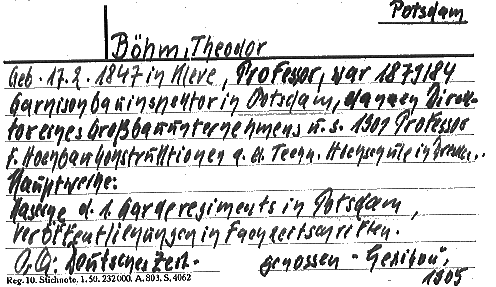 Potsdam
Böhm, Theodor
Geb. 17.2.1847 in Kleve, Professor, war 1879/84
Garnisonbauinspektor in Potsdam, danach Direk-
tor eines Großbauunternehmens u. s. 1901 Professor
f. Hochbaukonstruktionen a. d. Techn. Hochschule in Dresden.
Hauptwerke:
Kaserne d. 1. Garderegiments in Potsdam,
Veröffentlichungen in Fachzeitschriften.
Deutsches Zeit- genossen-Lexikon",
1905
Reg. 10. Suchnote. 1. 50. 232000. A. 803. S. 4062